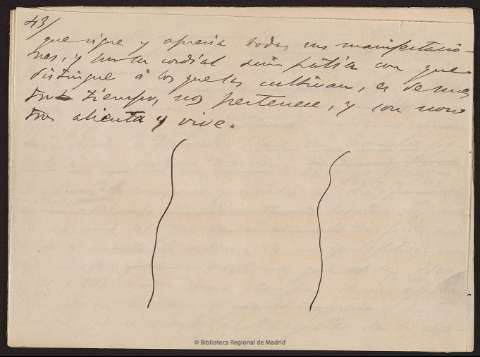 43/
que sigue y aprecia todas sus manifestacio-
nes, y por la cordial simpatia con que
distingue á los que las cultivan, es de nues
tro tiempo, nos pertenece, y con noso
tros alienta y vive.
© Biblioteca Regional de Madrid